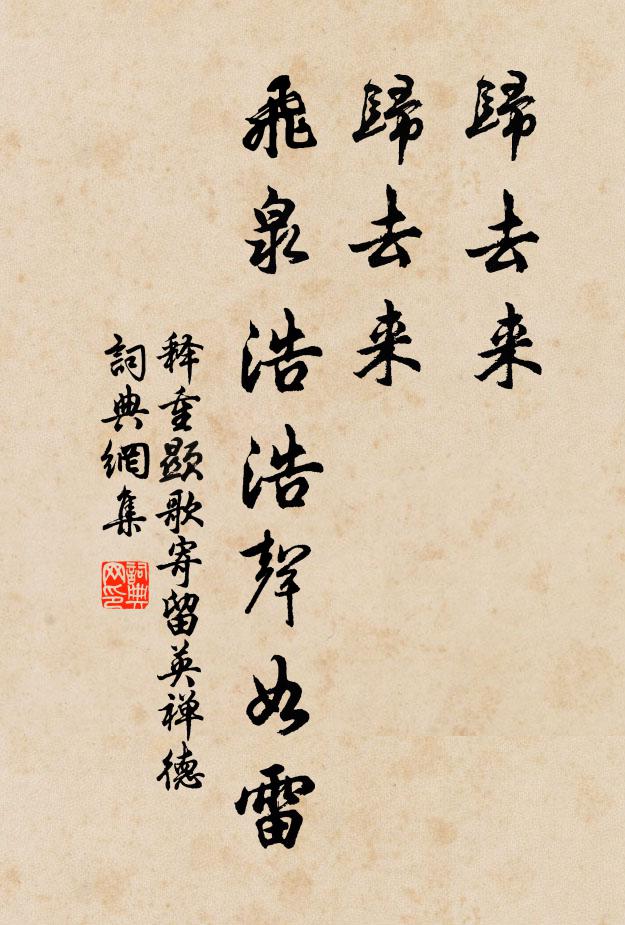 歸去来
歸去来
飛泉浩浩聲如雷
释重顯歌寄留英禅德
詞典網集
詞典网印